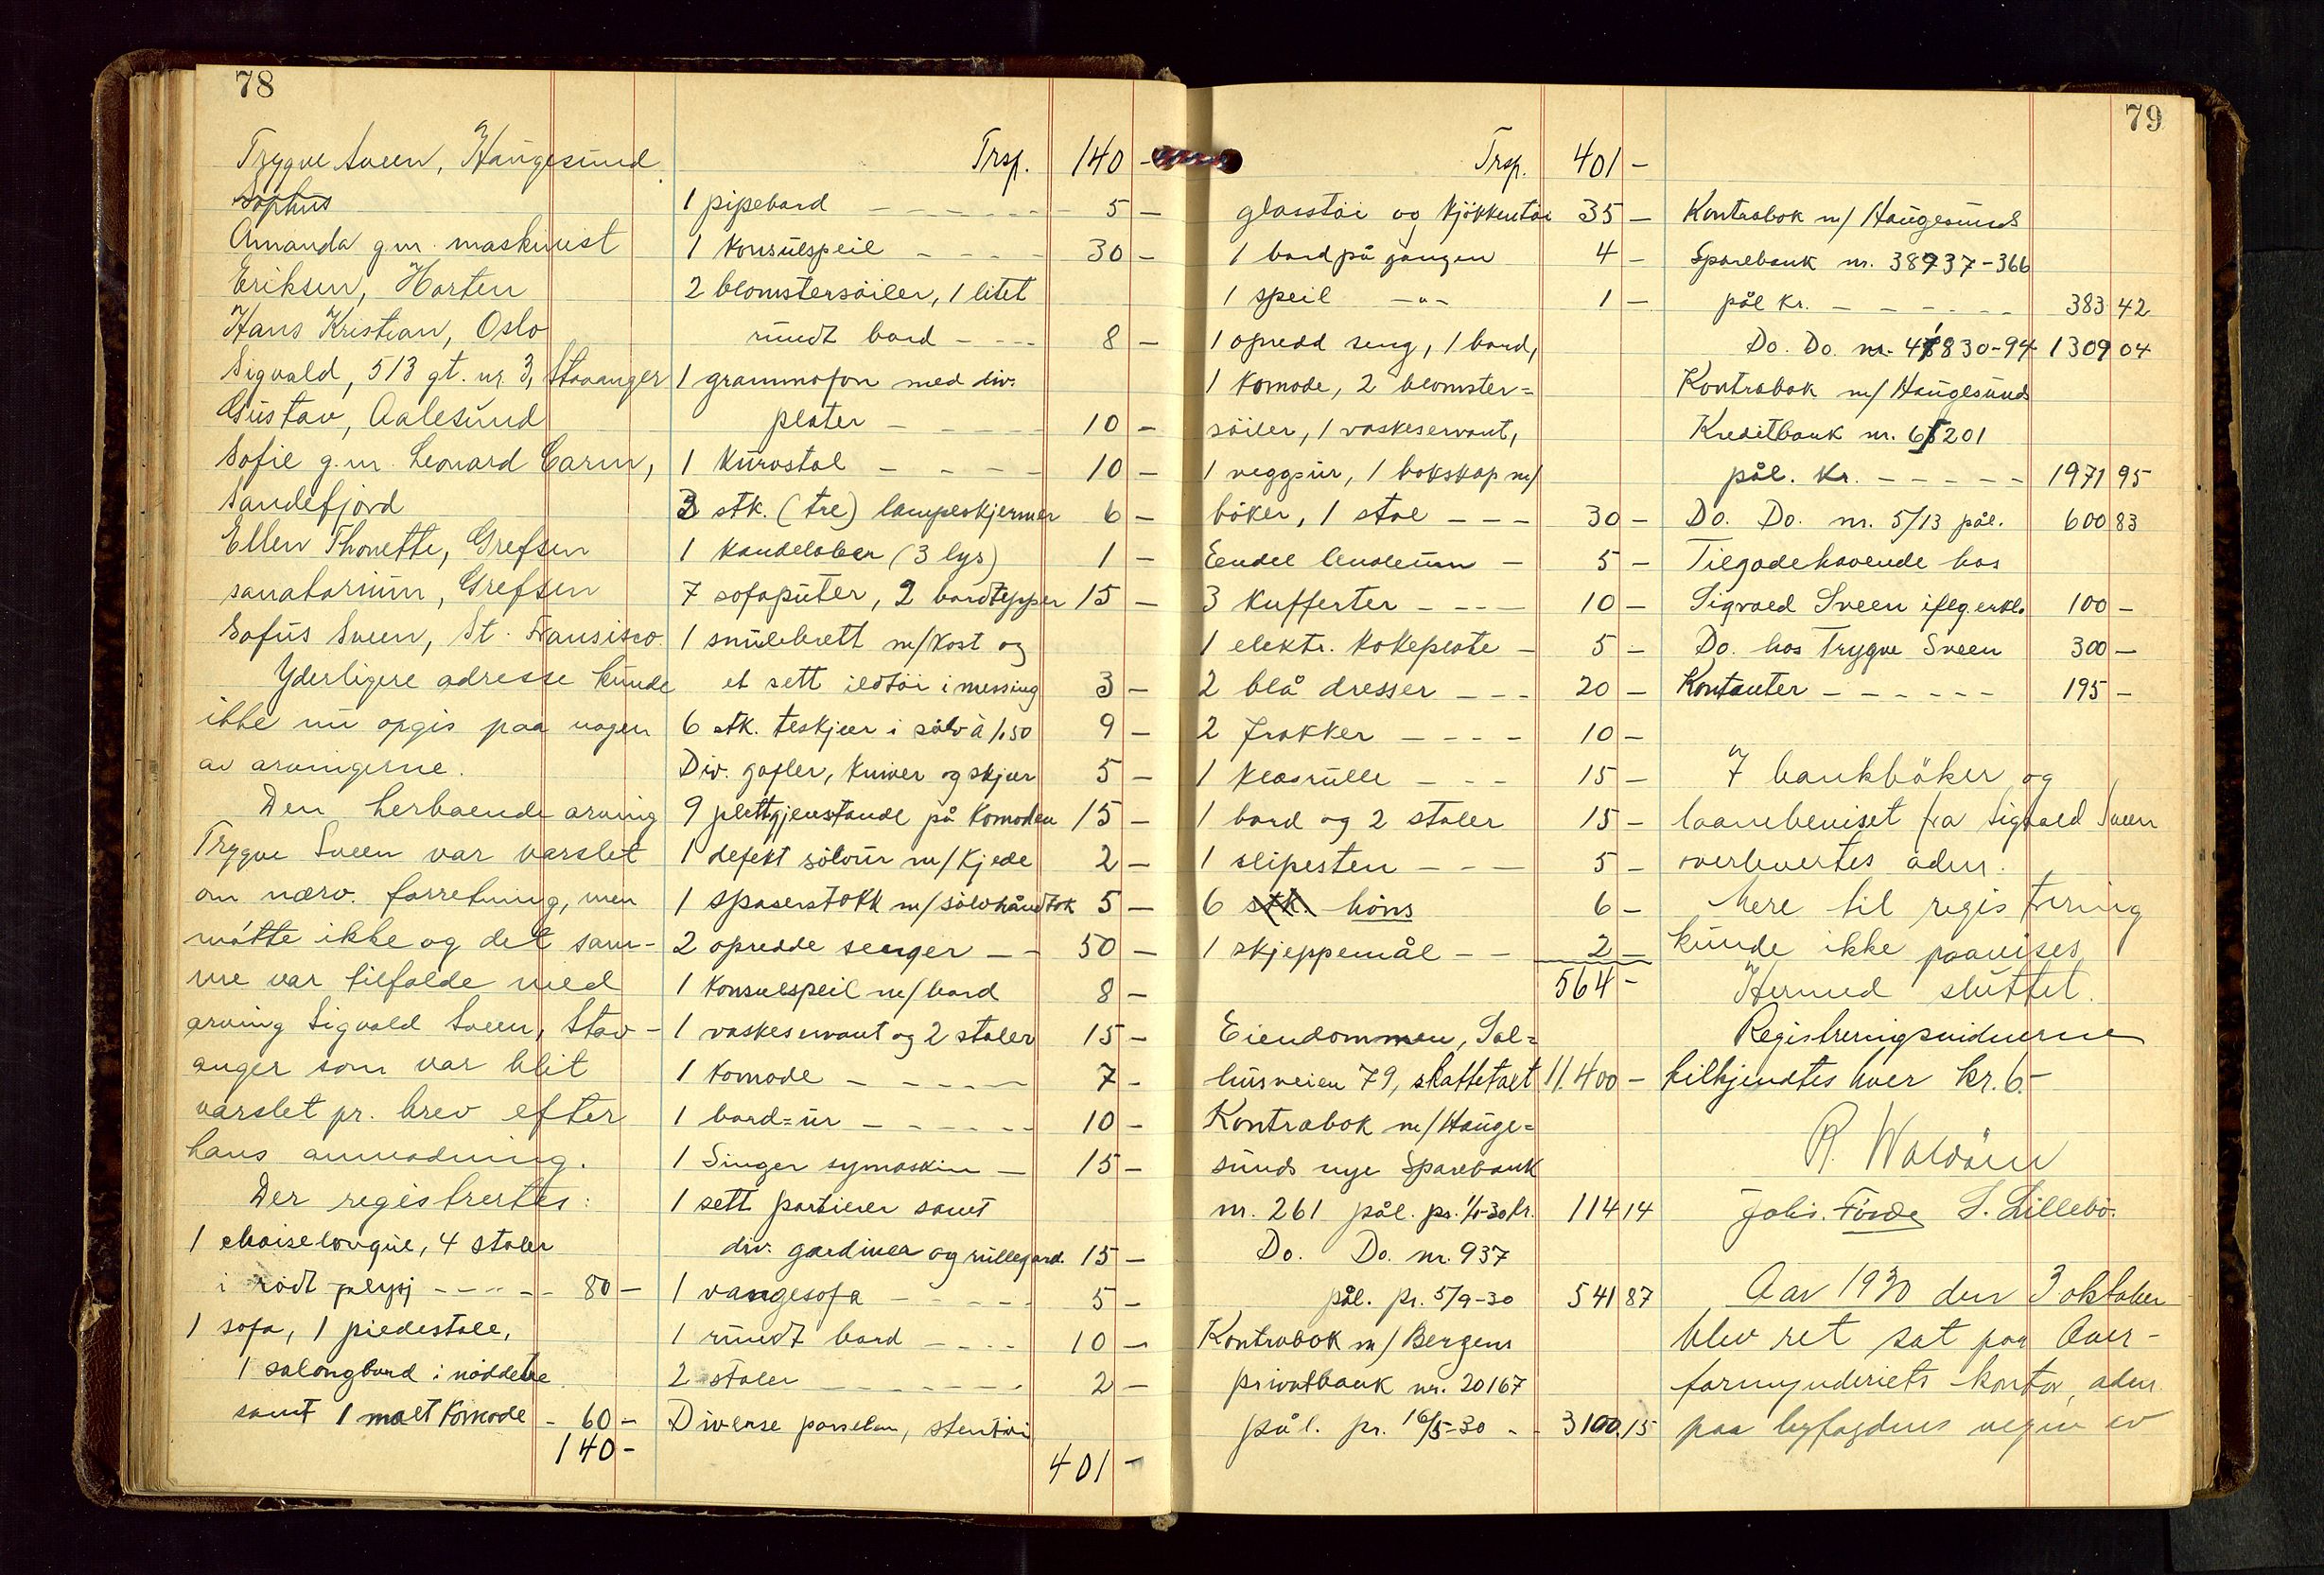 78
Trygve Sveen, Haugesund
Sophus
Amanda g.m. maskinist
Eriksen, Horten
Hans Kristian, Oslo
Sigvald, 513 gt. nr. 3, Stavanger
Gustav, Aalesund
Sofie g.m. Leonard Carm,
Sandefjord
Ellen Thonette, Grefsen
sanatorium, Grefsen
Sofus Sveen, St. Fransisco.
Yderligere adresse kunde
ikke nu opgis paa nogen
av arvingerne.
Den herboende arving
Trygve Sveen var varslet
om nærv. forretning, men
møtte ikke og det sam-
me var tilfælde med
arving Sigvald Sveen, Stav-
anger som var blit
varslet pr. brev efter
hans anmodning.
Der registrertes:
1 chaiselongue, 4 stoler
i rødt plysj - - - - - 80 -
1 sofa, 1 piedestale,
1 salongbord i nøddetre
samt 1 malt komode - 60 -
140 -
Trsp. 140 -
1 pipebord - - - - 5 -
1 konsulspeil - - - - 30 -
2 blomstersøiler, 1 litet
rundt bord - - - 8 -
1 grammofon med div.
plater - - - - 10 -
1 kurvstol - - - - 10 -
3 stk. (tre) lampeskjermer 6 -
1 kandelaber (3 lys) 1 -
7 sofaputer, 2 bordtepper 15 -
1 smulebrett m/kost og
et sett ildtøi i messing 3 -
6 stk. teskjeer i sølv à 1,50 9 -
Div. gafler, kniver og skjeer 5 -
9 plettgjenstande på komoden 15 -
1 defekt sølvur m/kjede 2 -
1 spaserstokk m/sølvhåndtak 5 -
2 opredde senger - - 50 -
1 konsulspeil m/bord 8 -
1 vaskeservant og 2 stoler 15 -
1 komode - - - - - 7 -
1 bord=ur - - - - - 10 -
1 Singer symaskin - 15 -
1 sett portierer samt
div. gardiner og rullegard. 15 -
1 vangesofa - - - - 5 -
1 rundt bord - - - - 10 -
2 stoler - - - - - - 2 -
Diverse porselen, stentøi
401 -
79
Trsp. 401 -
glasstøi og kjøkkentøi 35 -
1 bord på gangen 4 -
1 speil -"- 1 -
1 opredd seng, 1 bord,
1 komode, 2 blomster=
søiler, 1 vaskeservant,
1 veggur, 1 bokskap m/
bøker, 1 stol - - - 30 -
Eendel linoleum - 5 -
3 kufferter - - - - 10 -
1 elektr. kokeplate - 5 -
2 blå dresser - - - 20 -
2 frakker - - - - 10 -
1 klesrulle - - - 15 -
1 bord og 2 stoler 15 -
1 slipesten - - - 5 -
6 stk. høns 6 -
1 skjeppemål - - 2 -
564 -
Eiendommen, Sal=
husveien 79, skattetakt 11.400 -
Kontrabok m/Hauge=
sunds nye Sparebank
nr. 261 pål. pr. 1/1-30 kr. 114 14
Do. Do. nr. 937
pål. pr. 5/9-30 541 87
Kontrabok m/Bergens
privatbank nr. 20167
pål. pr. 16/5-30 - - 3100.15
Kontrabok m/Haugesunds
Sparebank nr. 38937-366
pål kr. - - - - - - 383 42
Do. Do. nr. 41830-94 1309 04
Kontrabok m/Haugesunds
Kreditbank nr. 65201
pål. kr. - - - - - 1971 95
Do. Do. nr. 5/13 pål. 600 83
Tilgodehavende hos
Sigvald Sveen iflg. erkl. 100 -
Do. hos Trygve Sveen 300 -
Kontanter - - - - - - 195 -
7 bankbøker og
laanebeviset fra Sigvald Sveen
overlevertes adm.
Mere til registrering
kunde ikke paavises
Hermed sluttet.
Registreringsvidnerne
tilkjendtes hver kr. 6.-
Johs. Førde L. Lillebø.
Aar 1930 den 3 oktober
blev ret sat paa Over-
formynderiets kontor, adm.
paa byfogdens vegne av